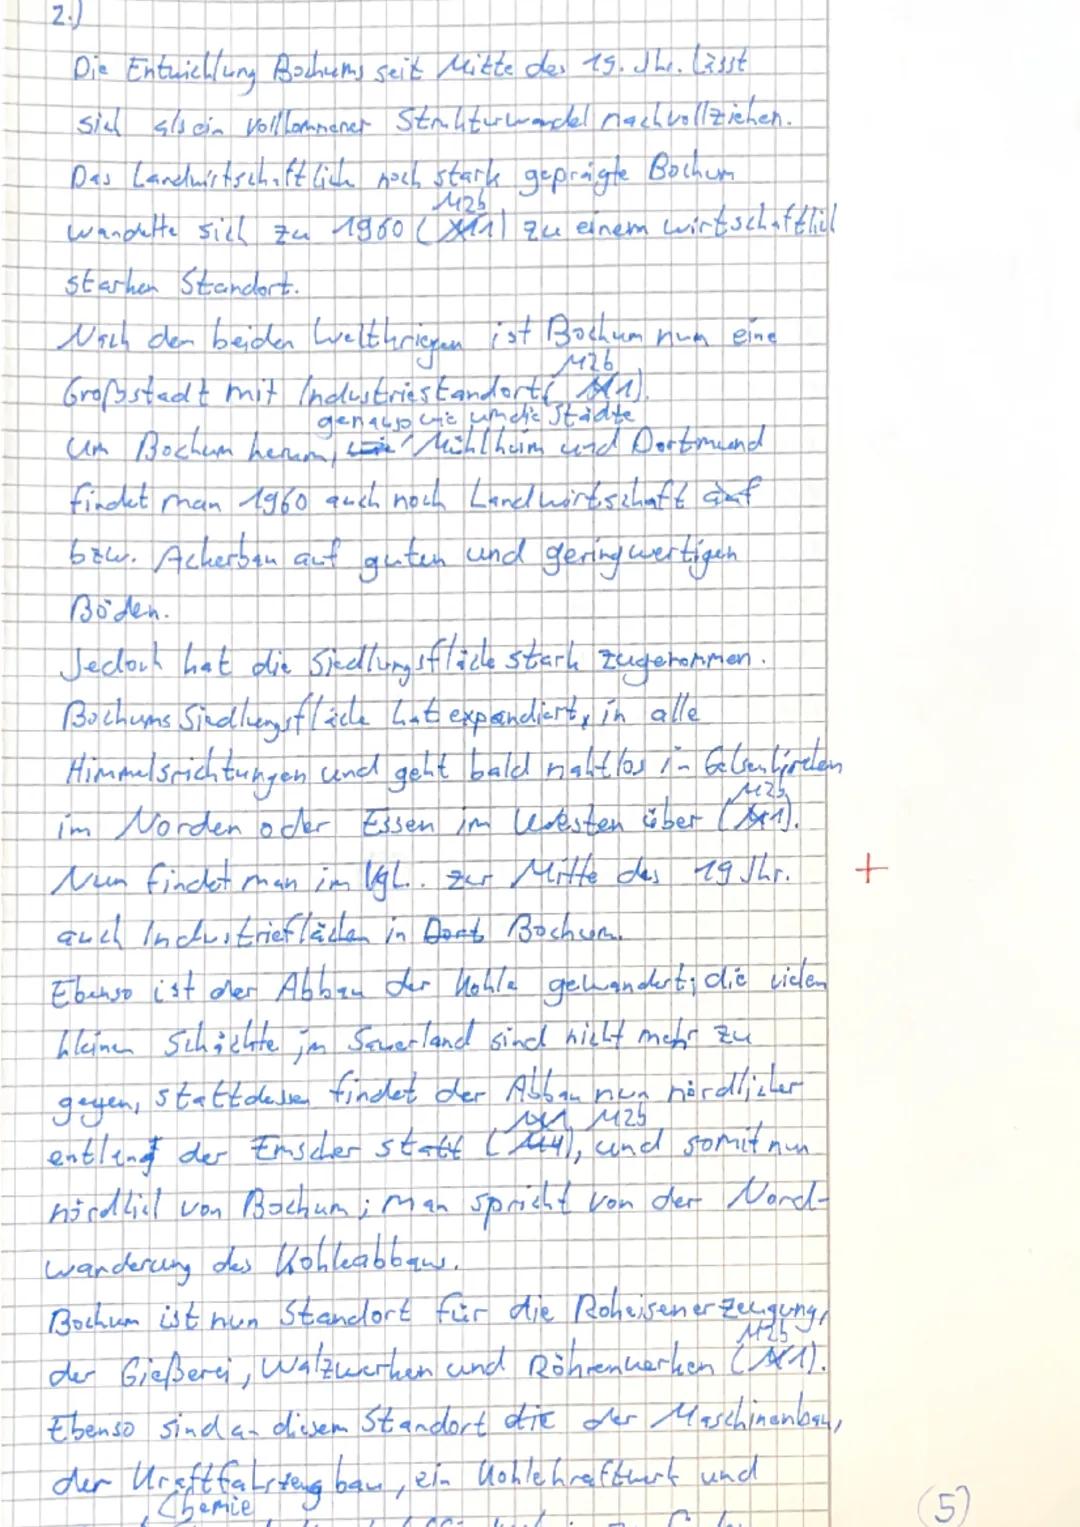 2.)
Die Entwicklung Bochums seit Mitte des 19. Jhr. lässt
sich als ein vollkommener Strukturwandel nachvollziehen.
Das Landwirtschaftlich noch stark geprägte Bochum
M2b
wandelte sich zu 1960 (M1) zu einem wirtschaftlich
starken Standort.
Nach den beiden Weltkriegen ist Bochum nun eine
M2b
Großstadt mit Industriestandort (M1).
genauso wie um die Städte
Um Bochum herum, wie Mühlheim und Dortmund
findet man 1960 auch noch Landwirtschaft auf
bzw. Ackerbau auf guten und geringwertigen
Böden.
Jedoch hat die Siedlungsfläche stark zugenommen.
Bochums Siedlungsfläche hat expandiert, in alle
Himmelsrichtungen und geht bald nahtlos in Gelsenkirchen
M2b
im Norden oder Essen im Westen über (M1).
Nun findet man im Vgl. zur Mitte des 19 Jhr. +
auch Industrieflächen in Dort Bochum.
Ebenso ist der Abbau der Kohle gewandert; die vielen
kleinen Schächte im Sauerland sind nicht mehr zu
gegen, stattdessen findet der Abbau nun nördlicher
M1 M2b
entlang der Emscher statt (M4), und somit nun
nördlich von Bochum; man spricht von der Nord-
wanderung des Kohleabbaus.
Bochum ist nun Standort für die Roheisenerzeugung,
M2b
der Gießerei, Walzwerken und Röhrenwerken (M1).
Ebenso sind an diesem Standort die der Maschinenbau,
der Kraftfahrzeugbau, ein Kohlekraftwerk und
Chemie
(5)